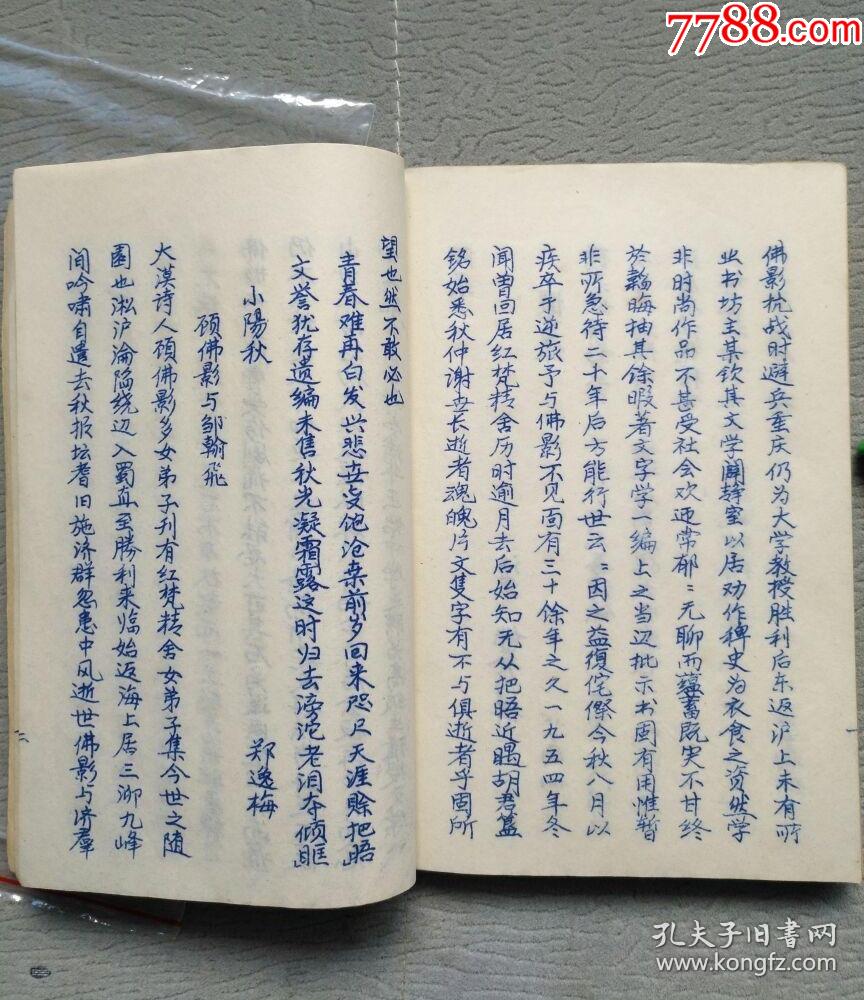 7788.com
佛影抗战时避兵重庆仍为大学教授胜利后东返沪上未有所
业书坊主某钦其文学辟静室以居劝作稗史为衣食之资然学
非时尚作品不甚受社会欢迎常郁=无聊而蕴蓄既宏不甘终
於韜晦抽其馀暇著文字学一编上之当道批示书固有用惟暂
非所急待二十年后方能行世云=因之益復侘傺今秋八月以
疾卒于逆旅予与佛影不见面有三十馀年之久一九五四年冬
闻曾回居红梵精舍历时逾月去后始知无从把晤近遇胡君簋
铭始悉秋仲谢世长逝者魂魄片文隻字有不与俱逝者乎固所
望也然不敢必也
青春难再白发兴悲世变饱沧桑前岁回来咫尺天涯赊把晤
文誉犹存遗编未售秋光凝霜露这时归去滂沱老泪夺倾眶
小陽秋
郑逸梅
顾佛影与邹翰飛
大漠诗人顾佛影多女弟子刊有红梵精舍女弟子集今世之随
園也淞沪淪陷绕辺入蜀直至勝利来临始返海上居三泖九峰
间吟啸自遣去秋报坛耆旧施济群忽患中风逝世佛影与济羣
孔夫子旧书网
www.kongfz.com